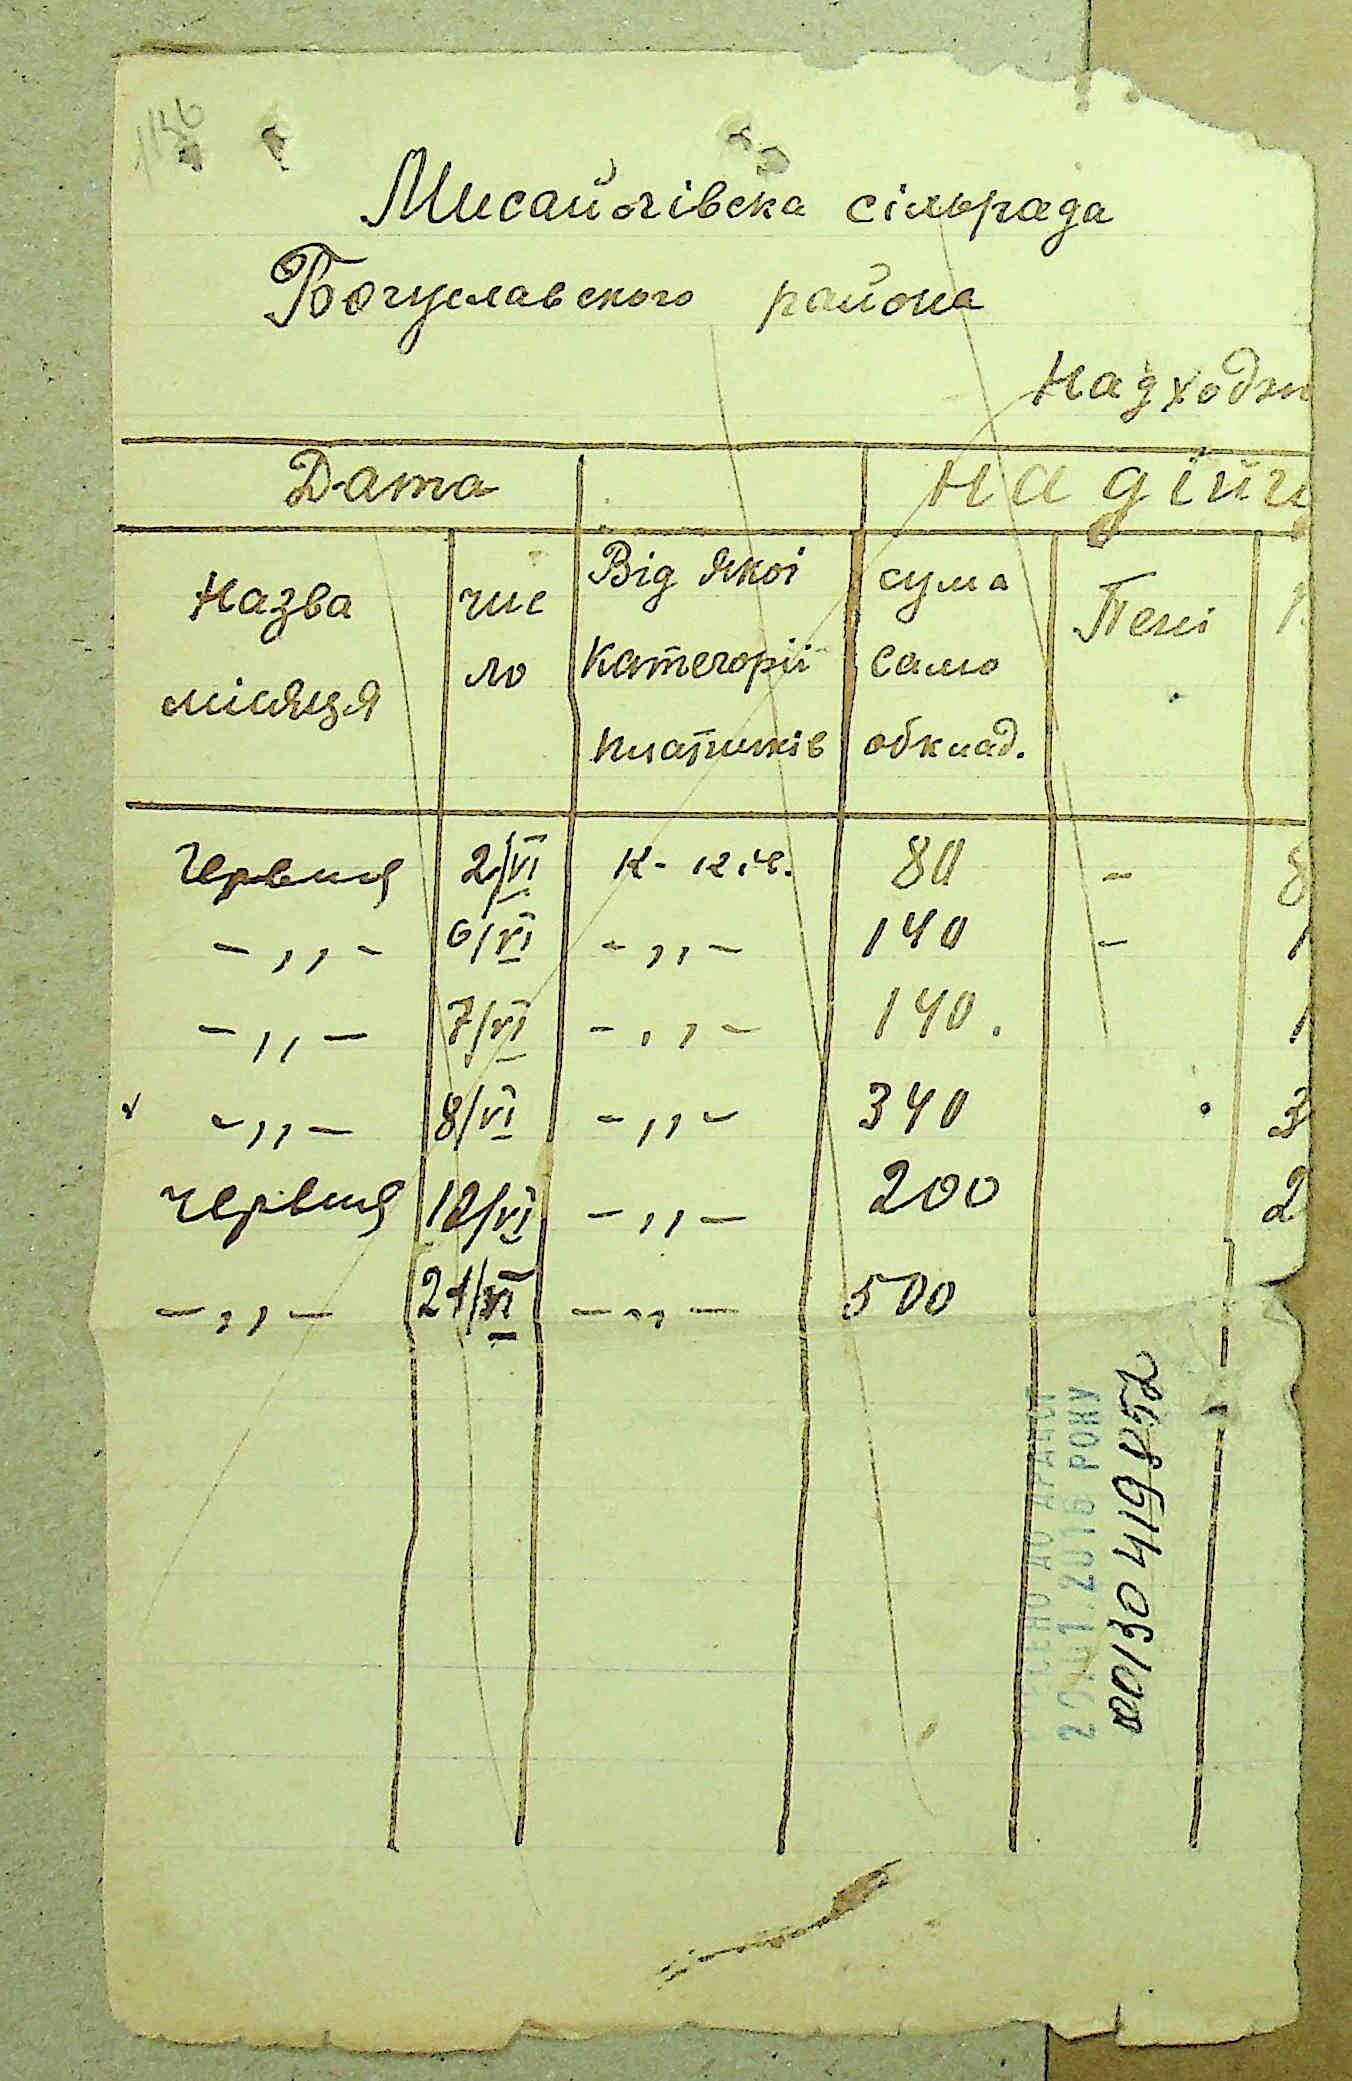 1136
Мисайлівска сільрада
Богуславского района
Надходж
Дата Надійш
Назва місяця число Від якоі Категоріі платників сума само обклад. Пені
Червня 2/VI к-к.ів. 80 - 8
-,,- 6/VI -,,- 140 - 1
-,,- 7/VI -,,- 140. 1
-,,- 8/VI -,,- 340 3
Червня 12/VI -,,- 200 2
-,,- 21/VI -,,- 500
2016 РОКУ
00130419852